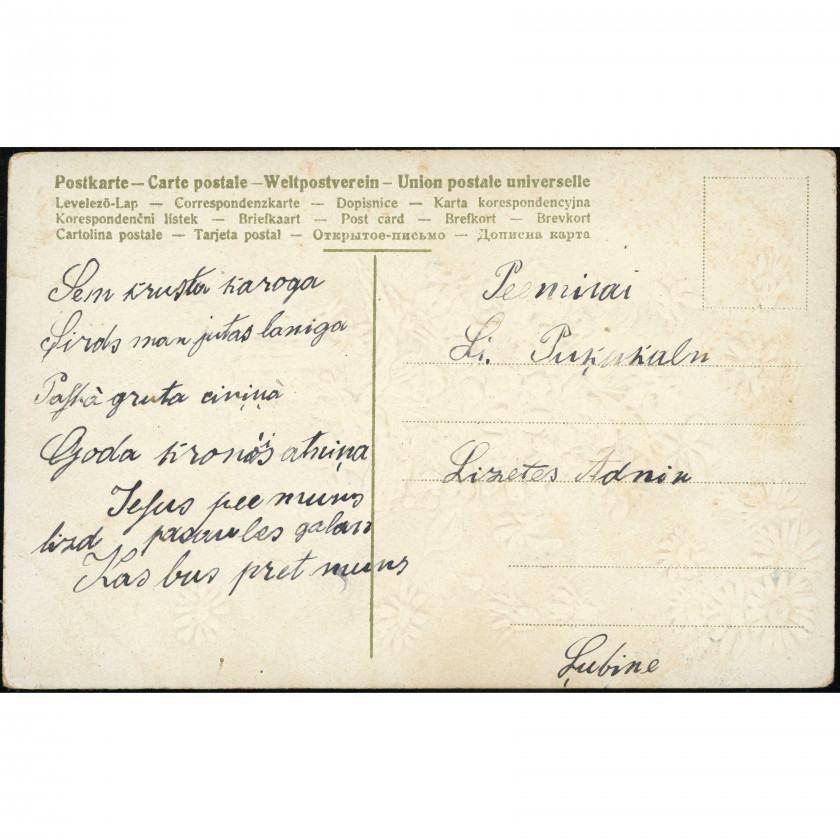 Postkarte — Carte postale — Weltpostverein — Union postale universelle
Levelezō-Lap — Correspondenzkarte — Dopisnice — Karta korespondencyjna
Korespondenčni listek — Briefkaart — Post card — Brefkort — Brevkort
Cartolina postale — Tarjeta postal — Открытое-письмо — Дописна карта
Sem krusta karoga
Sirds man jutas laniga
Paſchà gruta ciniņà
Goda kronis atniņa
Jeſus pee muns
lizd pasaules galam
Kas bus pret muns
Peeminai
Li. Puķukaln
Lizetes Adnin
Ļubine